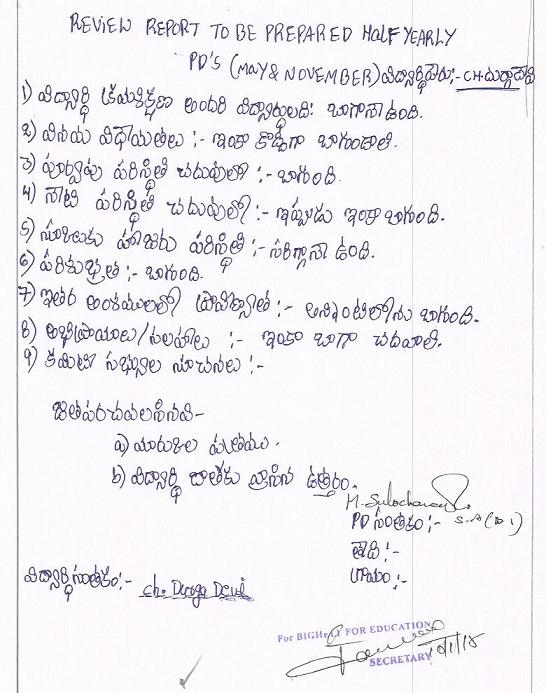 REVIEW REPORT TO BE PREPARED HALF YEARLY
PD'S (MAY & NOVEMBER) విద్యార్థి పేరు:- CH. దుర్గాదేవి
1) విద్యార్థి క్రమశిక్షణ అందరి విద్యార్థులది: బాగానే ఉంది.
2) వినయ విధేయతలు :- ఇంకా కొద్దిగా బాగుండాలి.
3) పూర్వపు పరిస్థితి చదువులో :- బాగుంది.
4) నేటి పరిస్థితి చదువులో :- ఇప్పుడు ఇంకా బాగుంది.
5) స్కూలుకు హాజరు పరిస్థితి :- సరిగ్గానే ఉంది.
6) పరిశుభ్రత :- బాగుంది.
7) ఇతర అంశములలో ప్రావిణ్యత :- అన్నింటిలోను బాగుంది.
8) అభిప్రాయాలు/సలహాలు :- ఇంకా బాగా చదవాలి.
9) కమిటి సభ్యుల సూచనలు :-
జతపరచవలసినవి-
a) మార్కుల పత్రము.
b) విద్యార్థి దాతకు వ్రాసిన ఉత్తరం.
M. Sulochana
PD సంతకం :-
తేది :-
గ్రామం :-
విద్యార్థి సంతకం :- Ch. Durga Devi
For BIGHELP FOR EDUCATION
SECRETARY 10/1/15